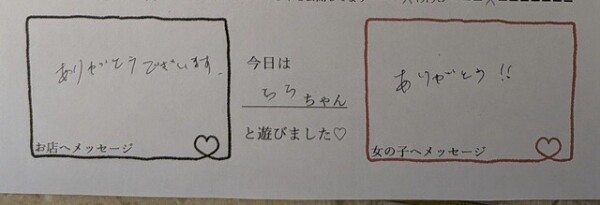 ありがとうございます.
お店へメッセージ
今日は
ちろちゃん
と遊びました♡
ありがとう!!
女の子へメッセージ